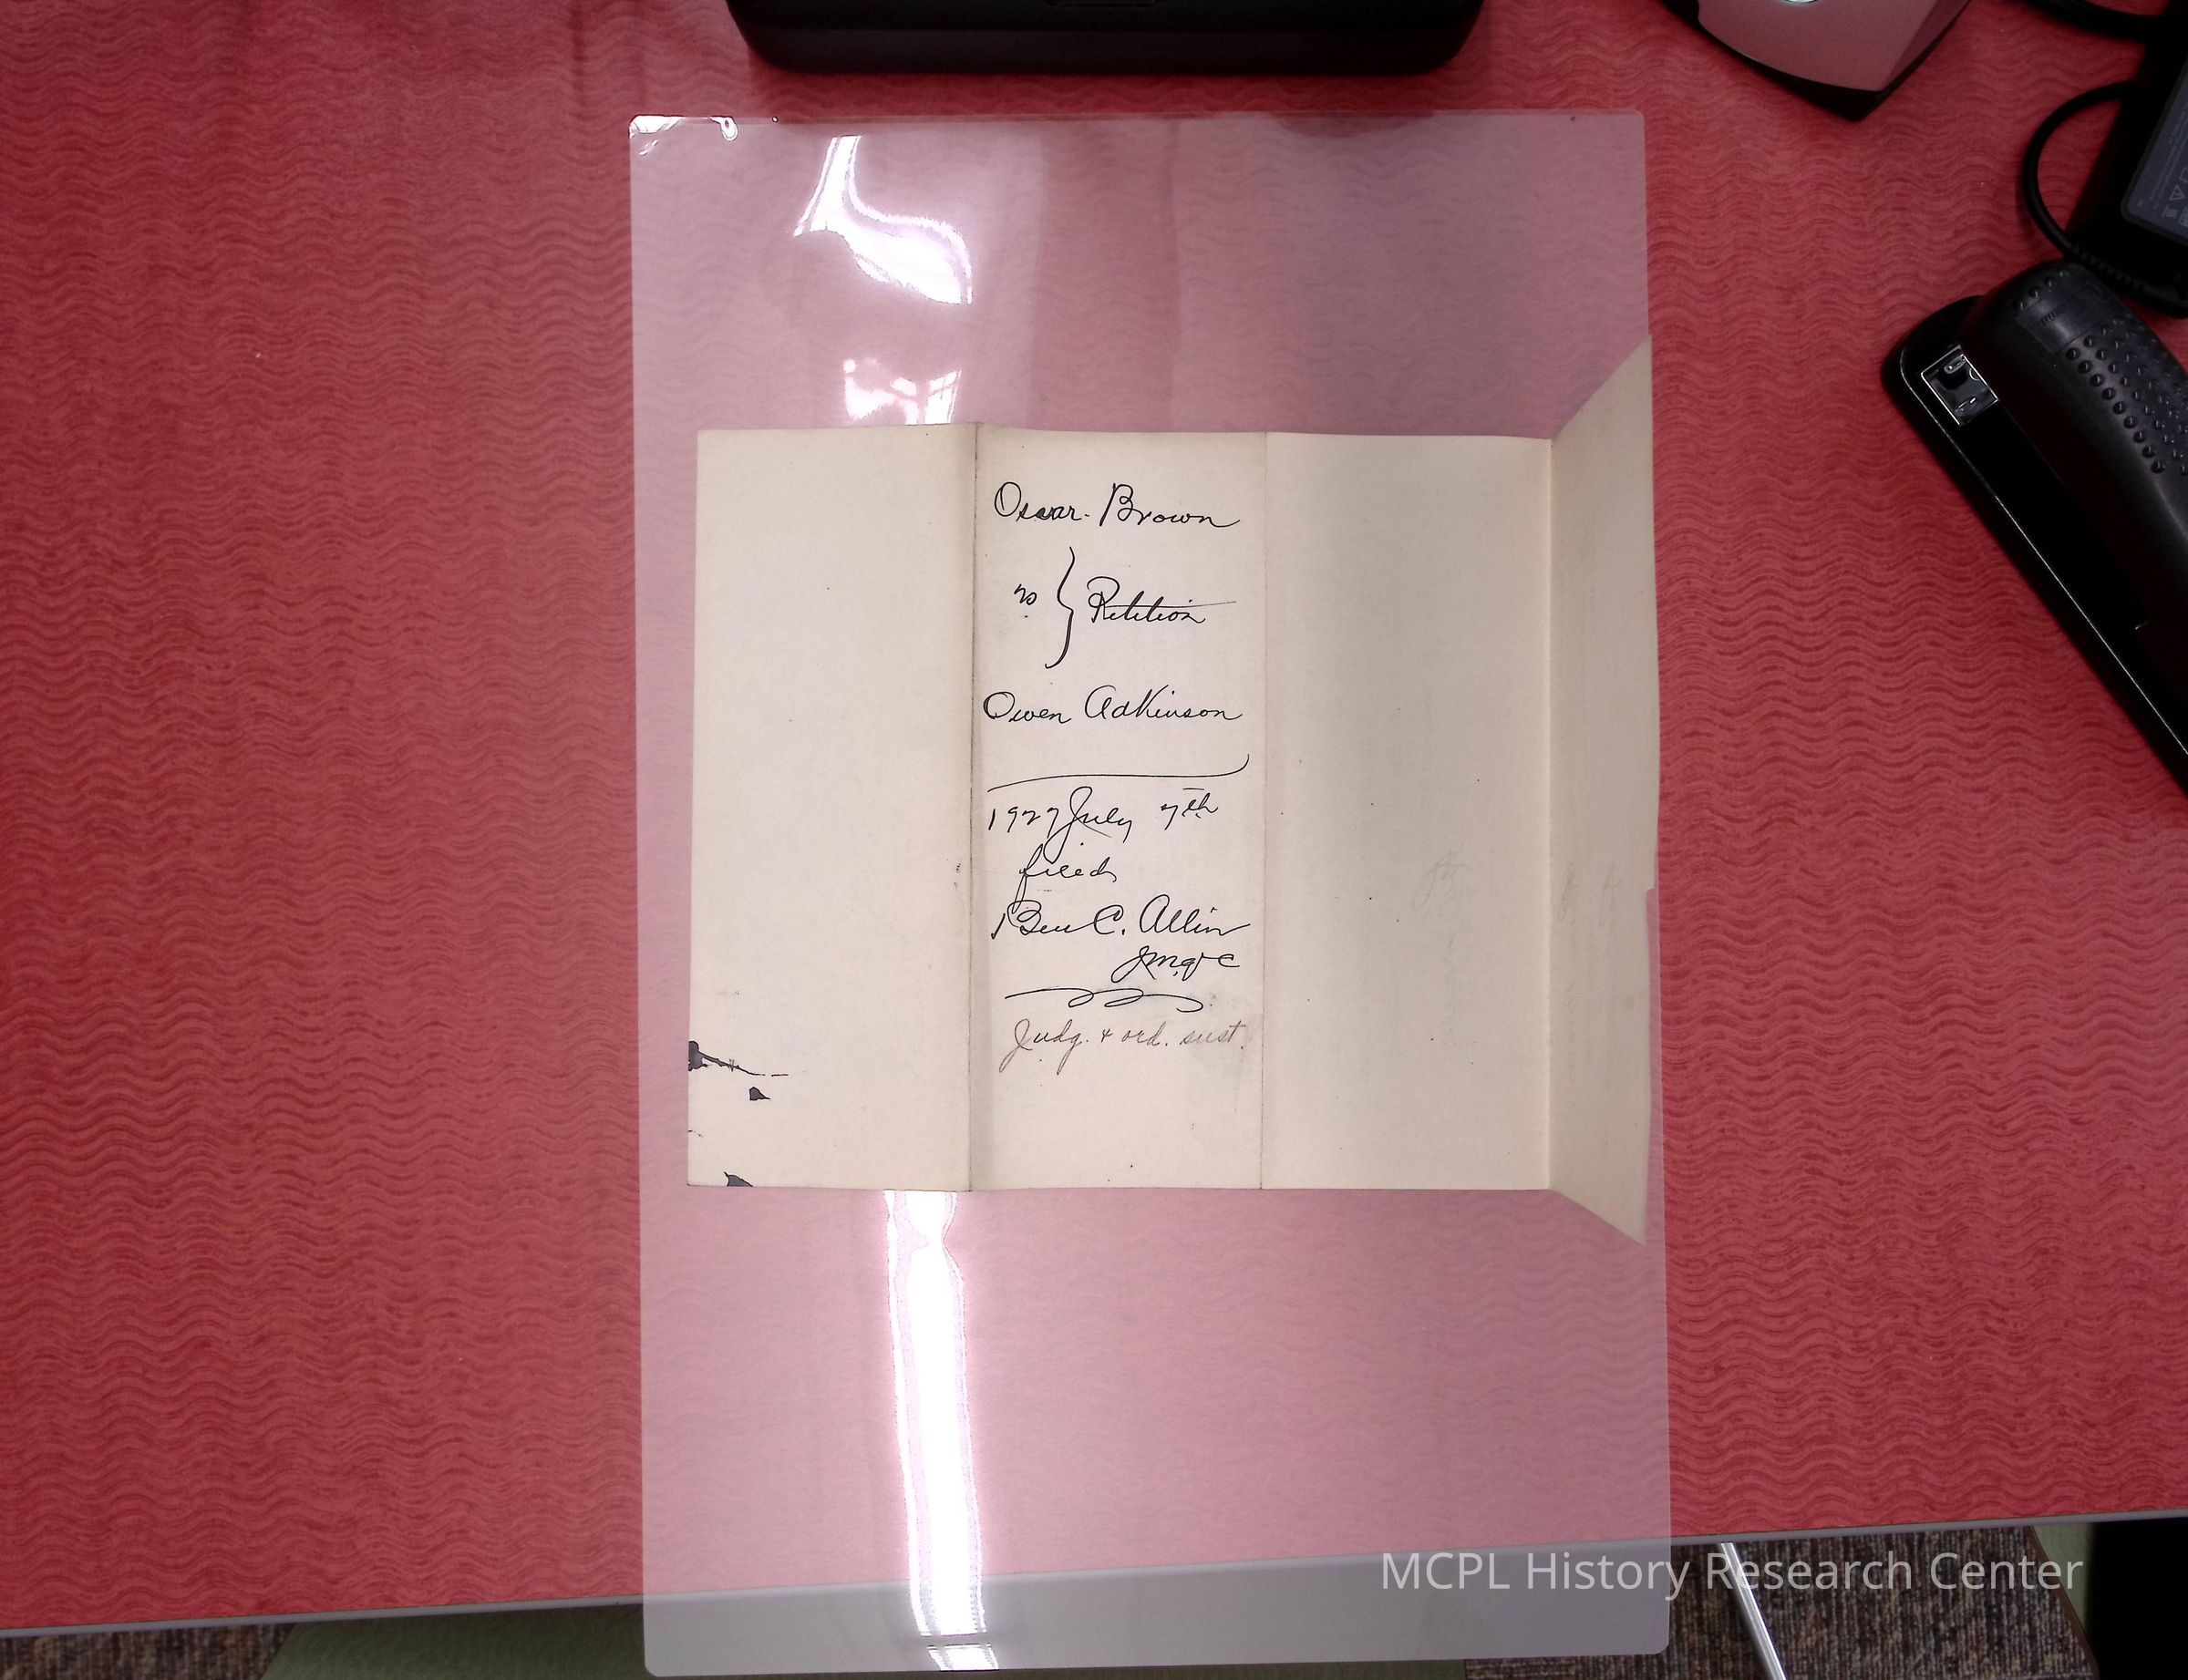 Oscar Brown
vs } Petition
Owen Adkinson
1927 July 7th
filed
Ben C. Allin
Judg. & ord. sust.
MCPL History Research Center